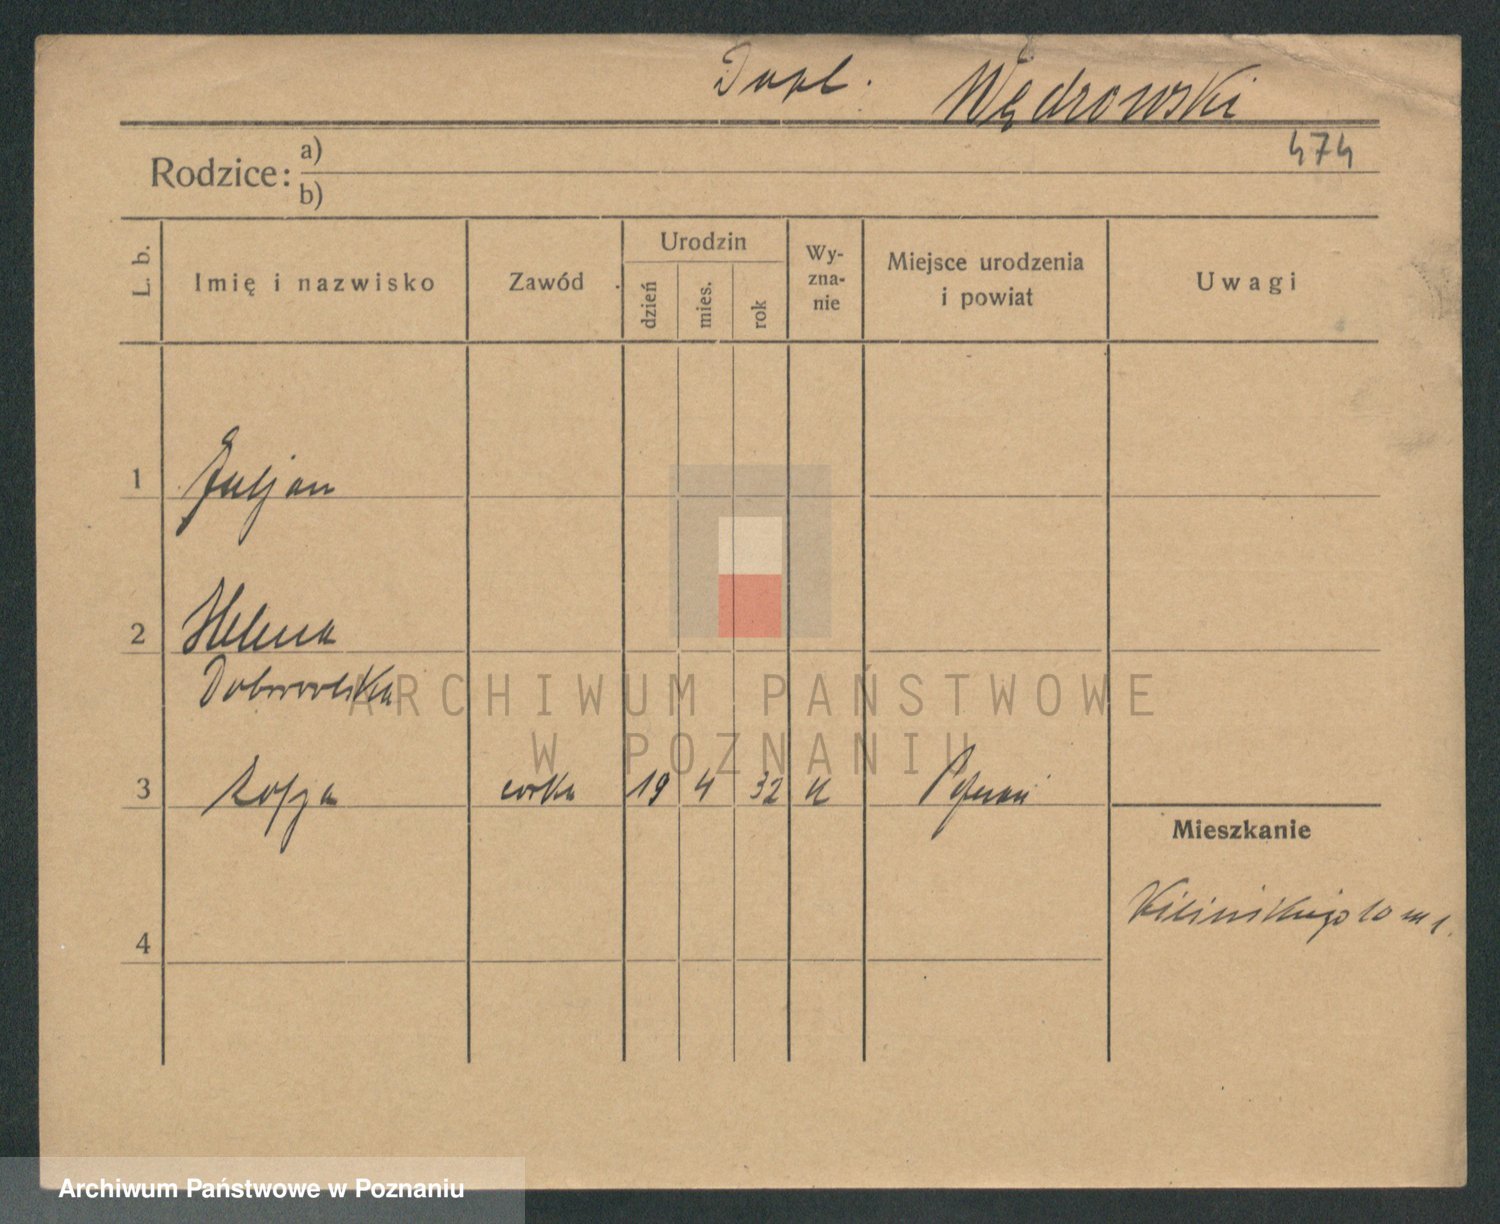 Dupl. Wędrowski
474
Rodzice: a)
b)
L. b.
Imię i nazwisko
Zawód
Urodzin
dzień
mies.
rok
Wy-
zna-
nie
Miejsce urodzenia
i powiat
Uwagi
1 Juljan
2 Helena
Dobrowolska
ARCHIWUM PAŃSTWOWE
W POZNANIU
3 Zofja córka 19 4 32 k Poznań
Mieszkanie
Kilińskiego 10 m 1.
4
Archiwum Państwowe w Poznaniu